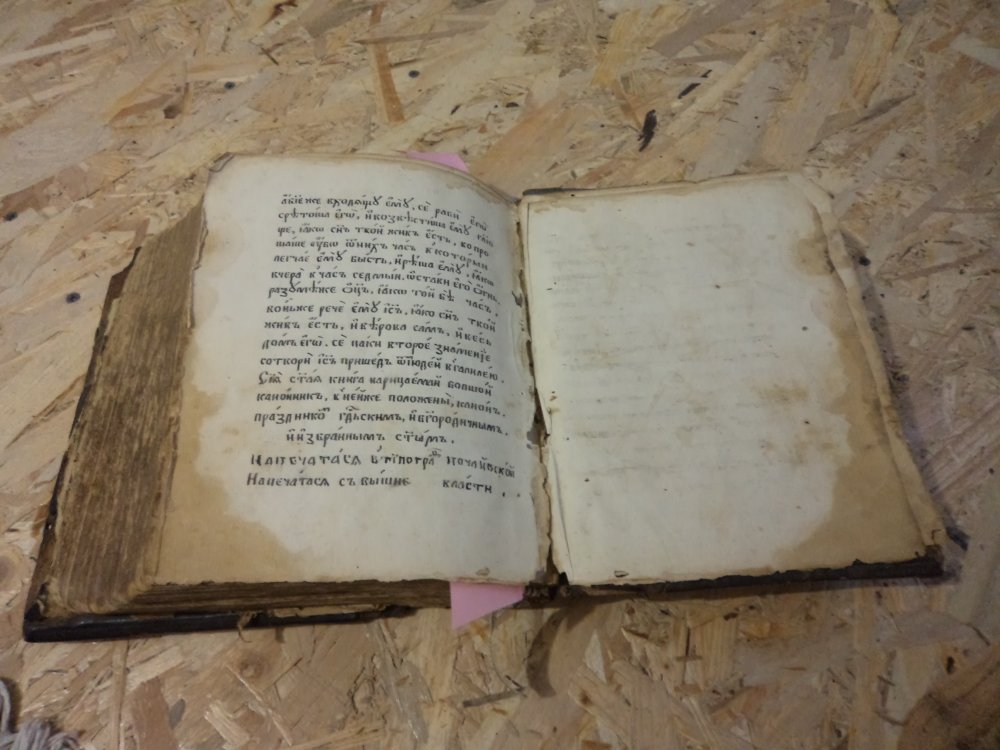 абїе же входѧщꙋ ємꙋ̀, сѐ рабѝ єгѡ̀
срѣтоша єго̀, и҆ возвѣстиша ємꙋ̀ глю
ще, ꙗкѡ сн҃ъ твой живъ є҆сть, вопро
шаше ᲂу҆бѡ ѿ нихъ часъ в который
легчае ємꙋ̀ бысть, и҆ рѣша ємꙋ̀, ꙗкѡ
вчера̀ в часъ седмый, ѡстави єго̀ ѻгнь,
разꙋмѣ же ѻ҆ц҃ъ, ꙗкѡ той бѣ часъ,
вонь же рече ємꙋ̀ і҆с҃ъ, ꙗко сн҃ъ твой
живъ є҆сть, и҆ вѣрова самъ, и҆ весь
домъ єгѡ̀. сѐ паки второе знаменїе
сотвори і҆с҃ъ пришедъ ѿ і҆юдей в галилею.
Сїѧ ст҃аѧ книга нарицаемаѧ вовшой
канонникъ, в не́йже положены, канон,
праздникѡ гд҃скимъ, и҆ бг҃ородичнымъ,
и҆ и҆збраннымъ ст҃ымъ.
Напечатасѧ в тїпогра почаиѡской
Напечатасѧ съ вышне власти.